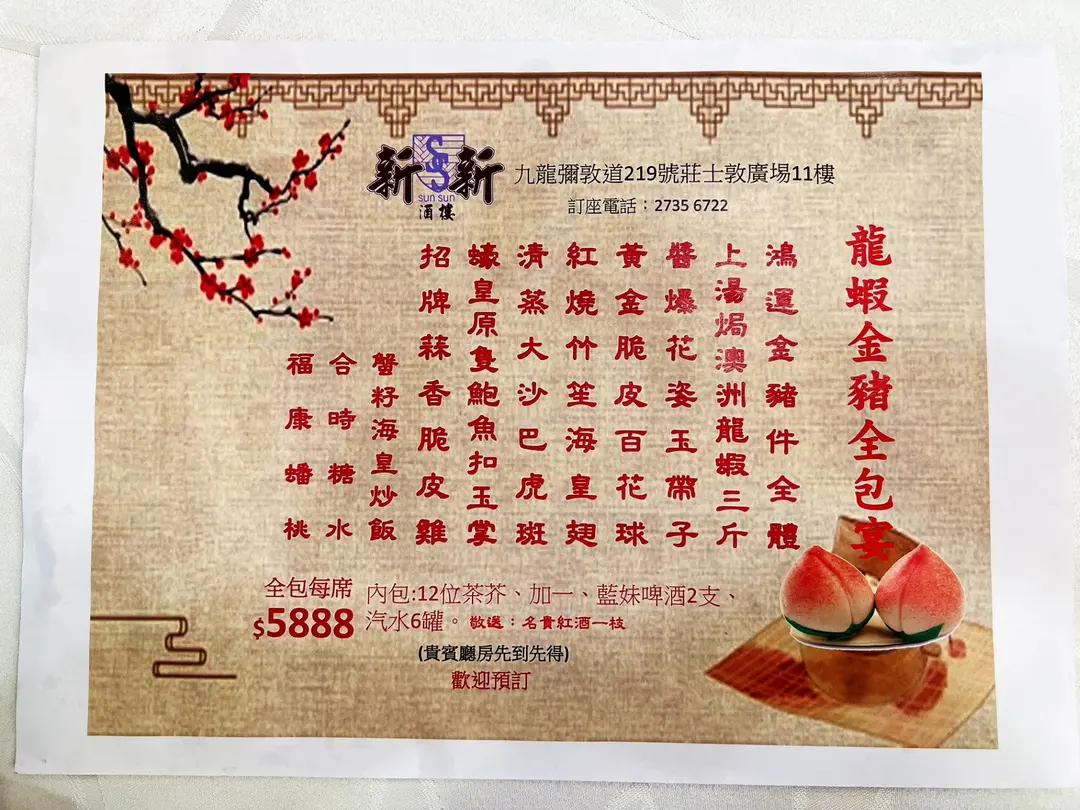 新新
SS
sun sun
酒樓
九龍彌敦道219號莊士敦廣場11樓
訂座電話：2735 6722
龍蝦金豬全包宴
鴻運金豬件全體
上湯焗澳洲龍蝦三斤
醬爆花姿玉帶子
黃金脆皮百花球
紅燒竹笙海皇翅
清蒸大沙巴虎斑
蠔皇原隻鮑魚扣玉掌
招牌蒜香脆皮雞
蟹籽海皇炒飯
合時糖水
福康蟠桃
全包每席
$5888
內包:12位茶芥、加一、藍妹啤酒2支、
汽水6罐。敬送：名貴紅酒一枝
(貴賓廳房先到先得)
歡迎預訂